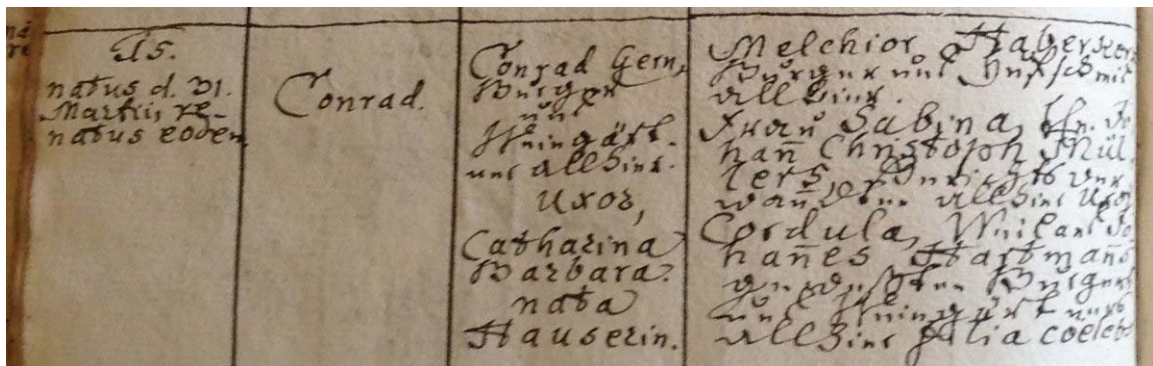 15.
natus d. 31.
Martii, re-
natus eodem
Conrad.
Conrad Gern,
Burger
und
Weingärt-
ner allhier.
Uxor,
Catharina
Barbara
nata
Hauserin.
Melchior Haberker,
Burger und Hufschmid
allhier.
Frau Sabina, Hn. Jo
hañ Christoph Mül
lers, Gerichts Ver
wandten allhier Uxor
Cordula, Weiland Jo
hañes Hartmañs
gewessten Burgers
und Weingärtners
allhier filia coelebs